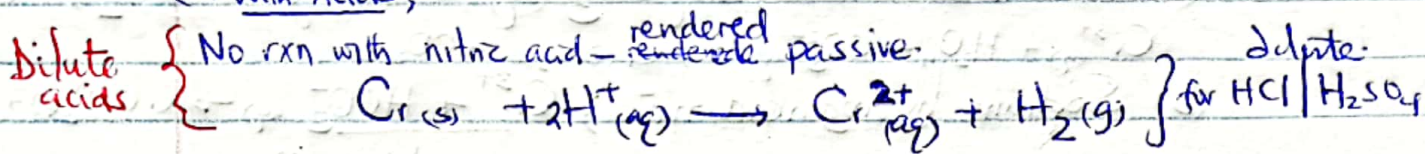 with Acids;
Dilute acids { No rxn with nitric acid – rendered passive.
Cr(s) + 2H⁺(aq) → Cr²⁺(aq) + H₂(g) } for dilute HCl | H₂SO₄